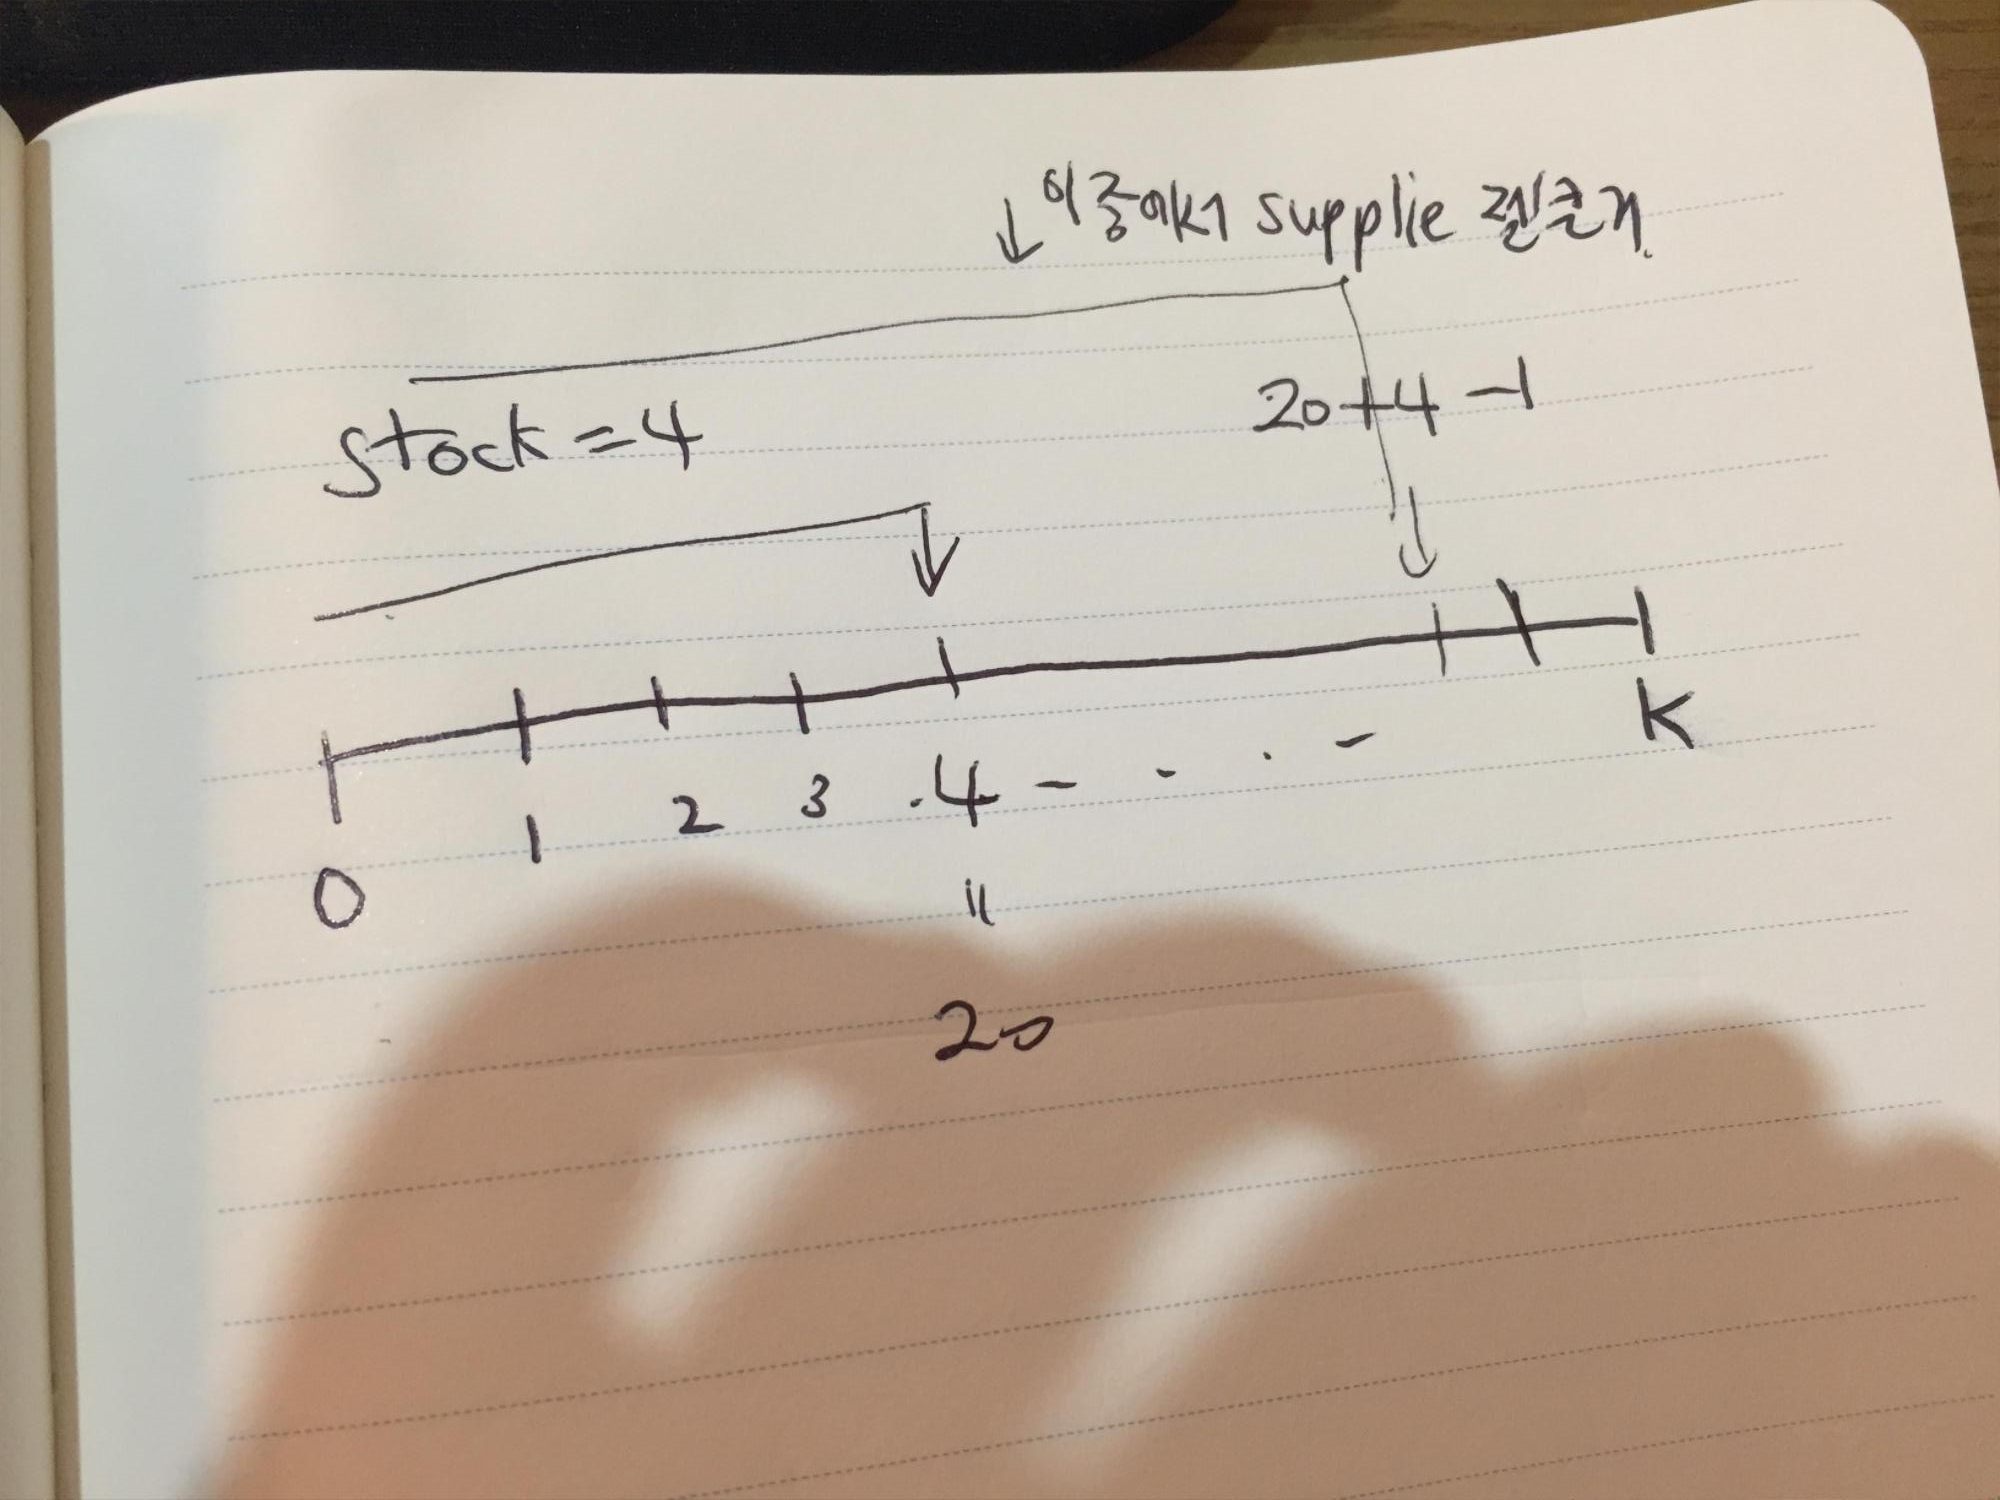 이중에서 supplie 젤큰거.
stock = 4
20+4-1
0 1 2 3 4 - - . - K
॥
20